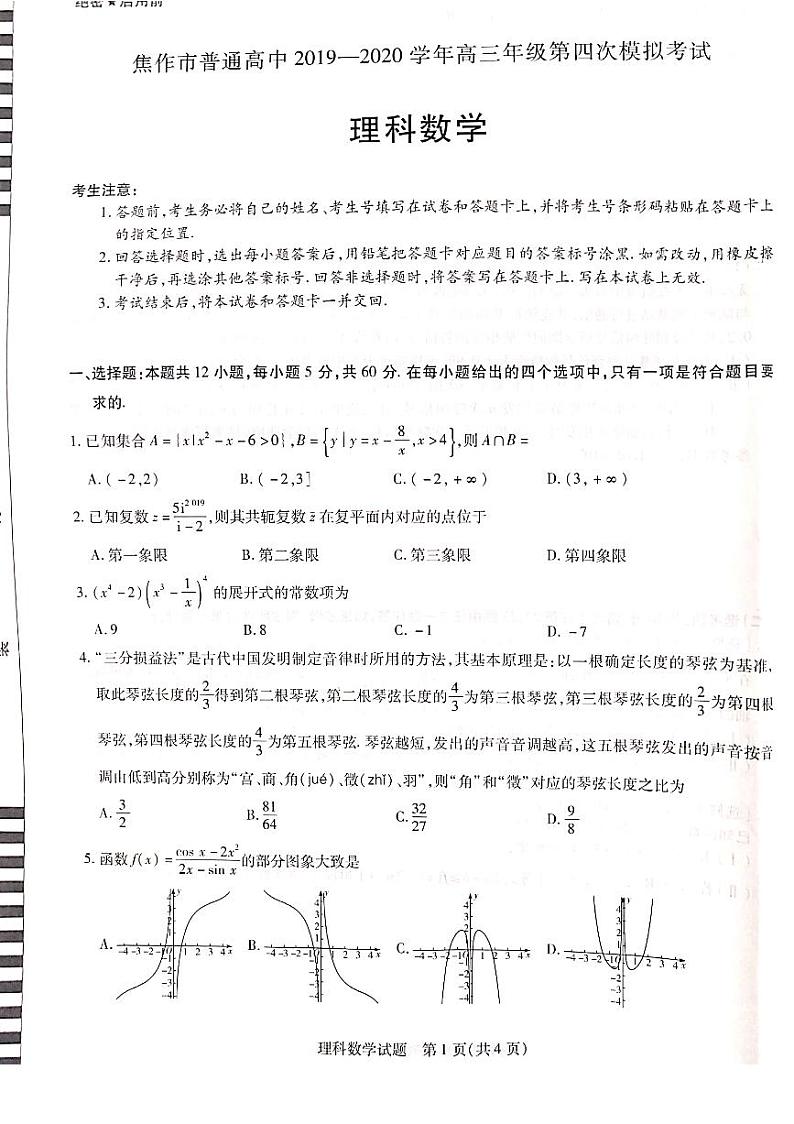 绝密★启用前
焦作市普通高中2019—2020学年高三年级第四次模拟考试
理科数学
考生注意:
1.答题前,考生务必将自己的姓名、考生号填写在试卷和答题卡上,并将考生号条形码粘贴在答题卡上
的指定位置.
2.回答选择题时,选出每小题答案后,用铅笔把答题卡对应题目的答案标号涂黑.如需改动,用橡皮擦
干净后,再选涂其他答案标号.回答非选择题时,将答案写在答题卡上.写在本试卷上无效.
3.考试结束后,将本试卷和答题卡一并交回.
一、选择题:本题共12小题,每小题5分,共60分.在每小题给出的四个选项中,只有一项是符合题目要
求的.
1.已知集合A={x|x²-x-6>0},B={y|y=x-8/x,x>4},则A∩B=
A.(-2,2) B.(-2,3] C.(-2,+∞) D.(3,+∞)
2.已知复数z=5i^2019/(i-2),则其共轭复数z̄在复平面内对应的点位于
A.第一象限 B.第二象限 C.第三象限 D.第四象限
3.(x⁴-2)(x³-1/x)⁴的展开式的常数项为
A.9 B.8 C.-1 D.-7
4.“三分损益法”是古代中国发明制定音律时所用的方法,其基本原理是:以一根确定长度的琴弦为基准,
取此琴弦长度的2/3得到第二根琴弦,第二根琴弦长度的4/3为第三根琴弦,第三根琴弦长度的2/3为第四根
琴弦,第四根琴弦长度的4/3为第五根琴弦.琴弦越短,发出的声音音调越高,这五根琴弦发出的声音按音
调由低到高分别称为“宫、商、角(jué)、徵(zhǐ)、羽”,则“角”和“徵”对应的琴弦长度之比为
A.3/2 B.81/64 C.32/27 D.9/8
5.函数f(x)=(cos x-2x²)/(2x-sin x)的部分图象大致是
A. B. C. D.
理科数学试题 第1页(共4页)